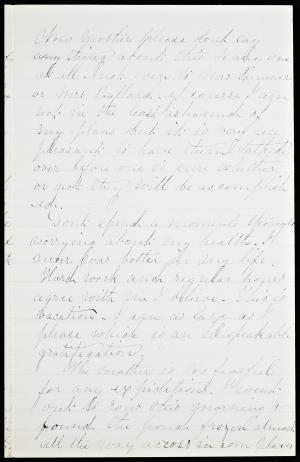 Now Mother please dont say
any thing about this to any one
at all. not even to Mrs
or Mrs Of course I am
not in the least ashamed of
my plans but it is very un
pleasant to have them talked
over before one is sure whether
or not they will be accomplish
ed.
Dont spend a moments thought
worrying about my health. I
never was better in my life.
Hard work and regular hours
agree with me I believe. This is
vacation. I am as large as I
please which is an unspeakable
gratification.
The weather is too fearful
for any expeditions. I went
out to row this morning &
found the pond frozen almost
all the way across in some places